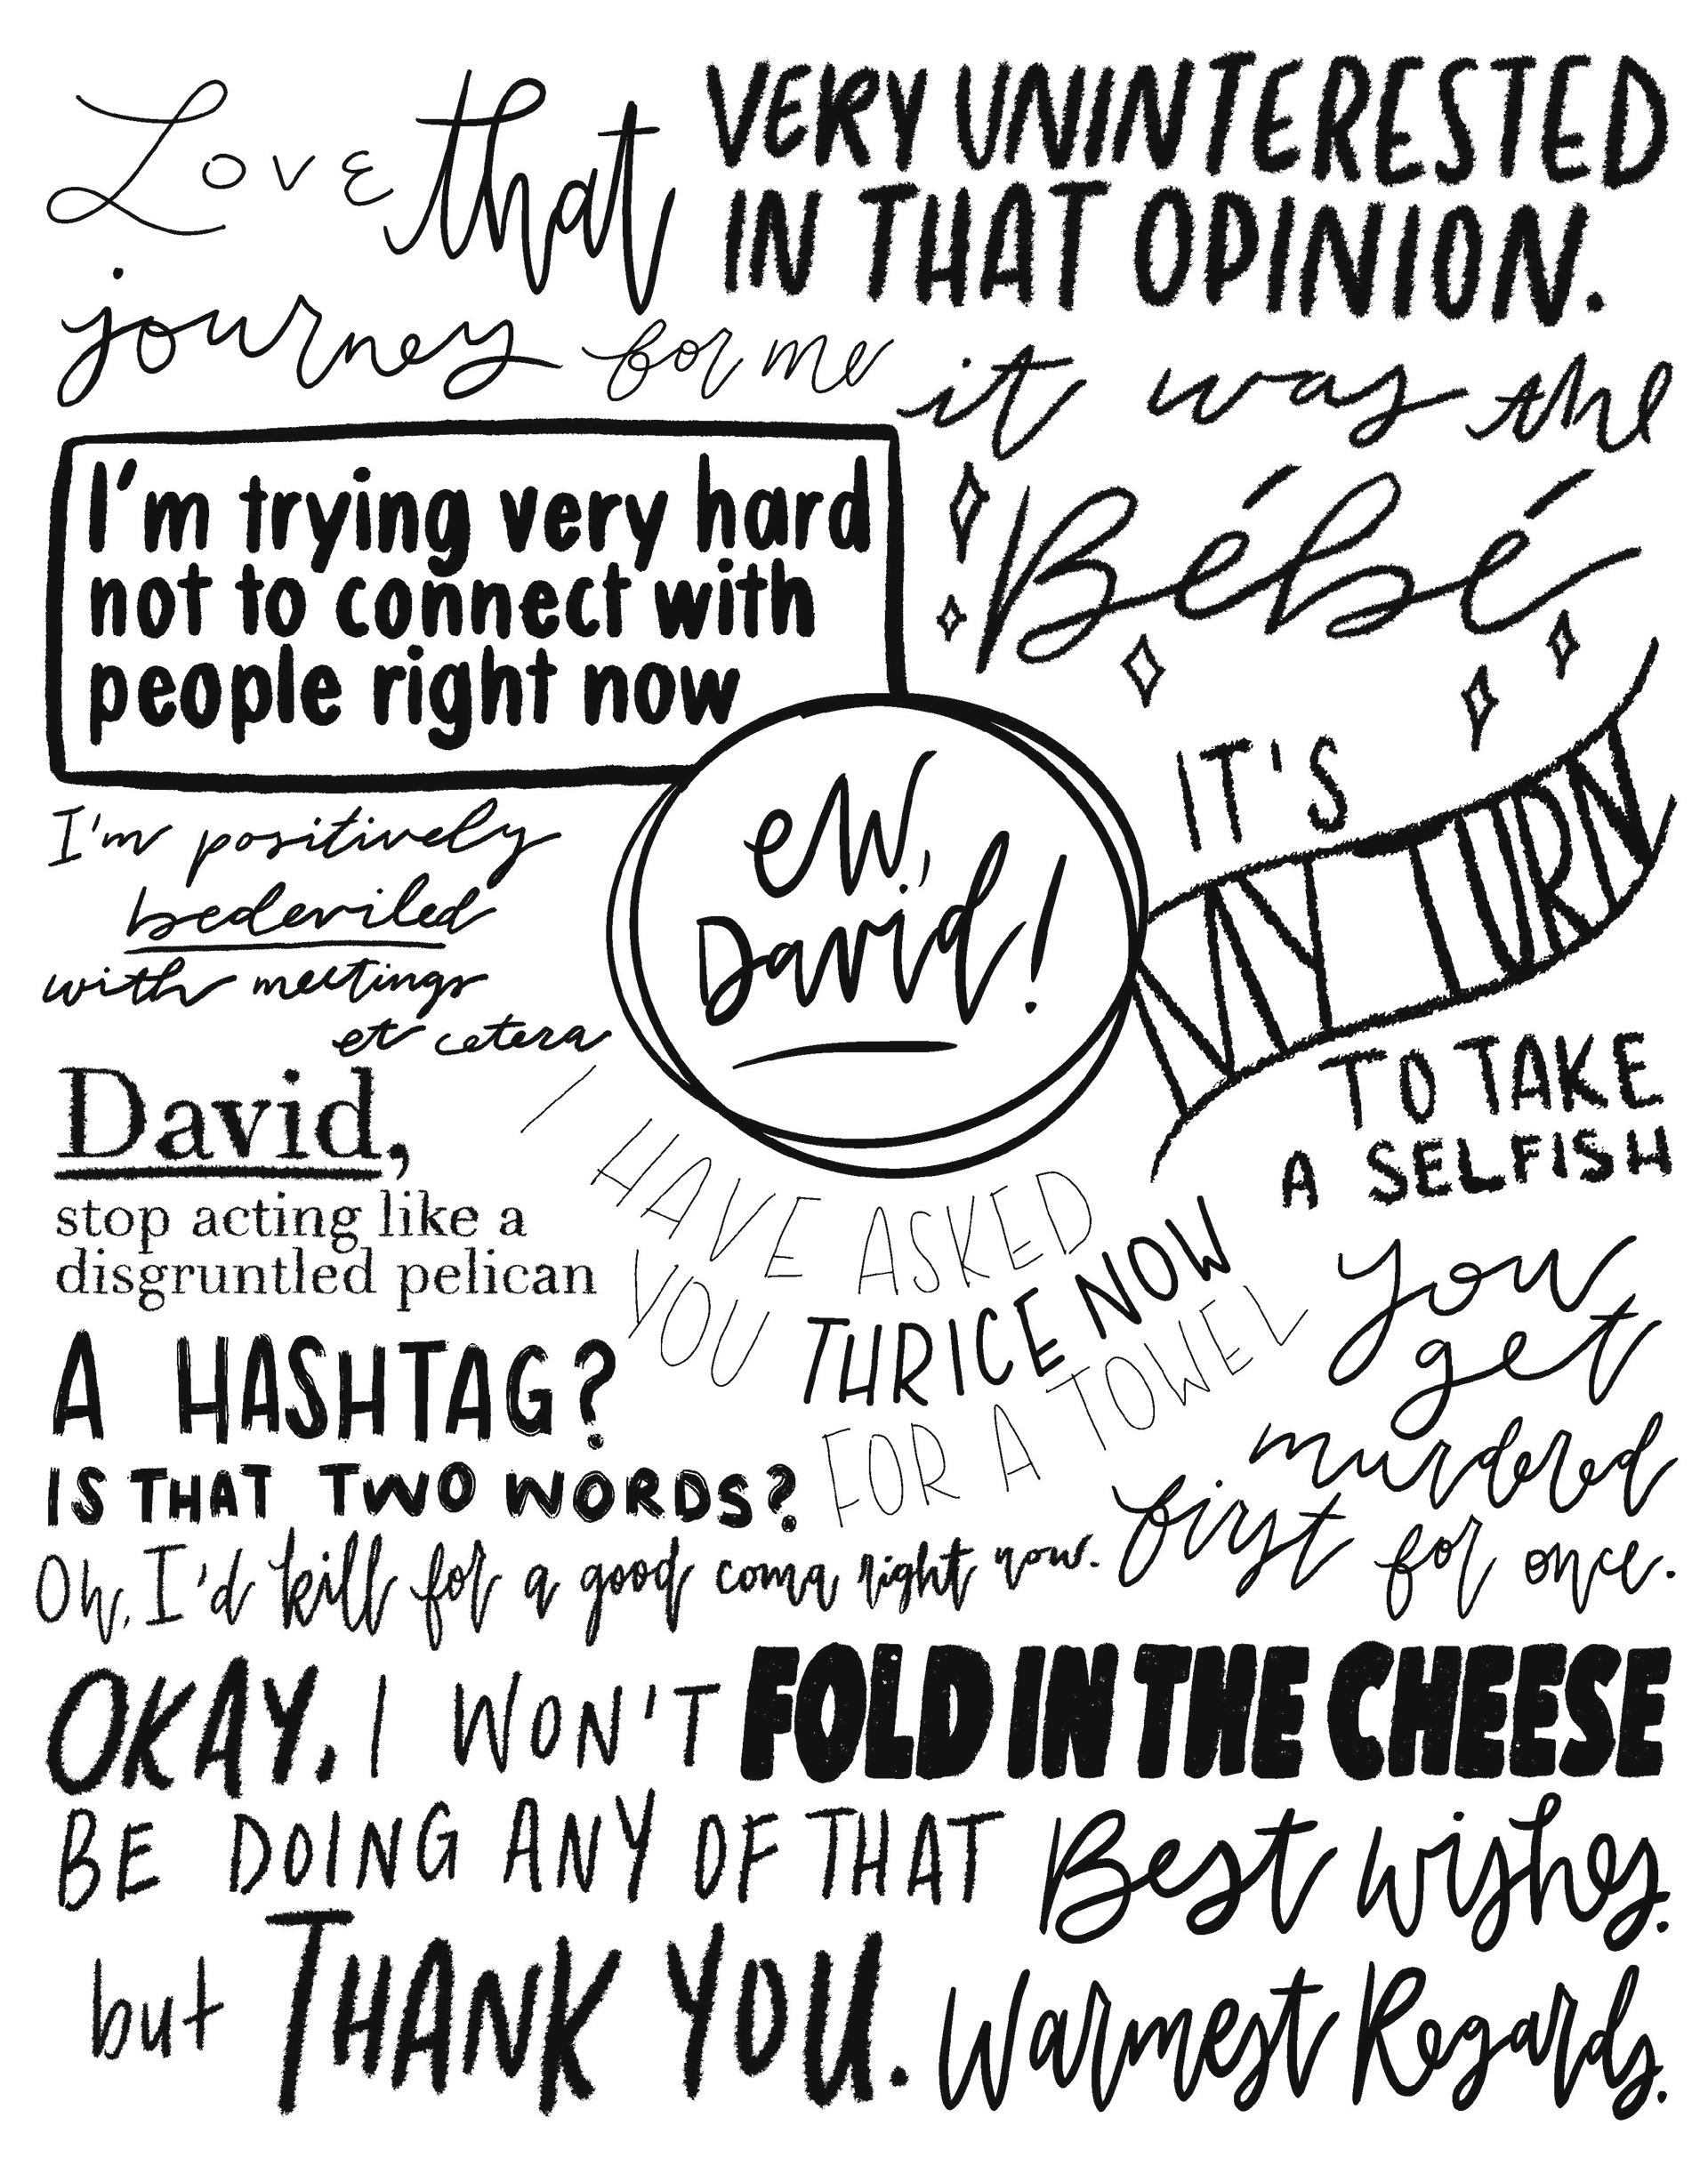 Love that
journey for me
VERY UNINTERESTED
IN THAT OPINION.
it was the
Bébé
I'm trying very hard
not to connect with
people right now
ew,
David!
IT'S
MY TURN
TO TAKE
A SELFISH
I'm positively
bedeviled
with meetings
et cetera
David,
stop acting like a
disgruntled pelican
I HAVE ASKED
YOU THRICE NOW
FOR A TOWEL
you
get
murdered
first for once.
A HASHTAG?
IS THAT TWO WORDS?
Oh, I'd kill for a good coma right now.
OKAY, I WON'T
BE DOING ANY OF THAT
but THANK YOU.
FOLD IN THE CHEESE
Best Wishes.
Warmest Regards.